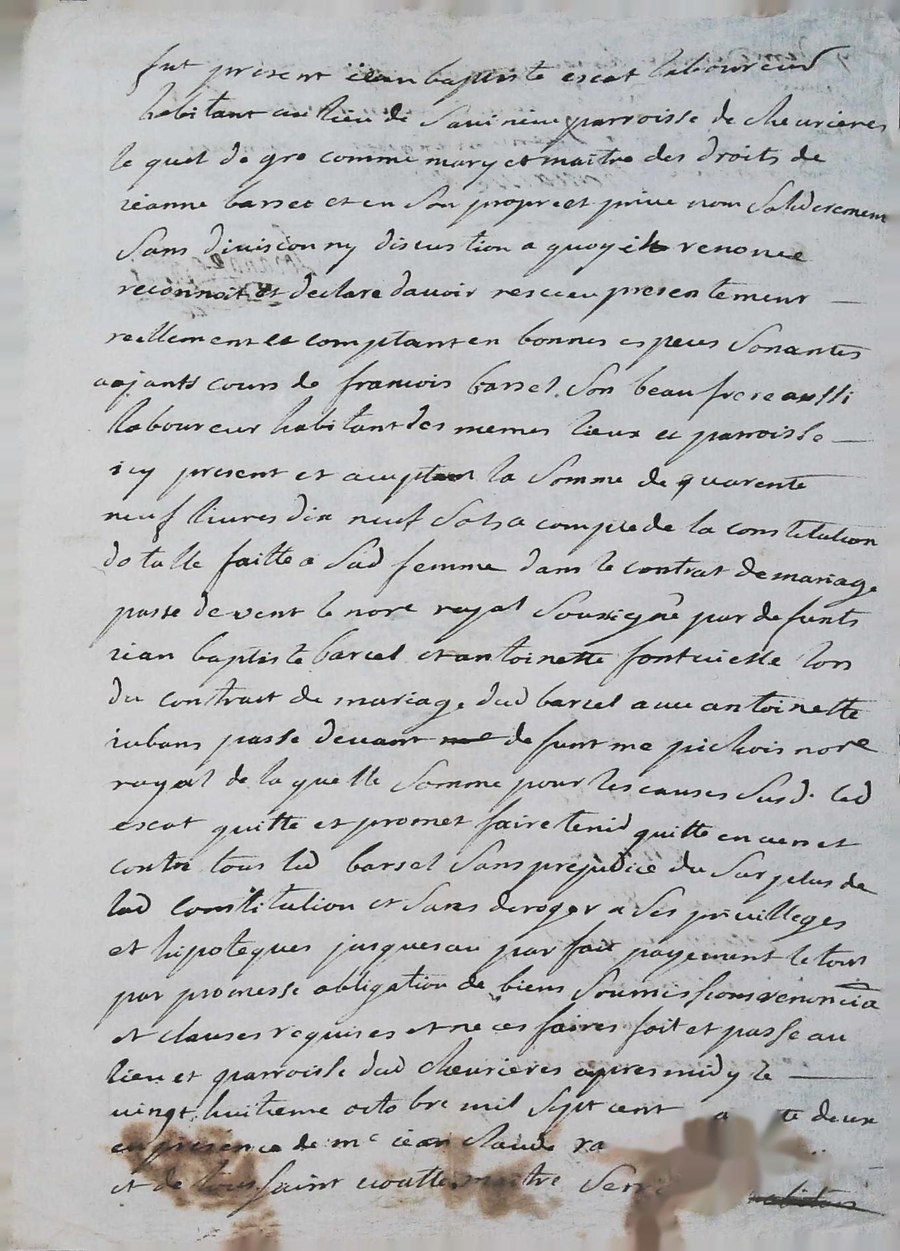 fut present iean baptiste escot laboureur
habitant au lieu de parroisse de cheurieres
le quel de gre comme mary et maitre des droits de
ieanne barset et en son propre et prive nom soliderement
sans division ny discution a quoy il renonce
reconnoit et declare davoir resceu presentement
reellement et comptant en bonnes especes sonantes
aajants cours de francois barsel son beau frere aussi
laboureur habitant des memes lieux et parroisse
icy present et aceptant la somme de quarente
neuf livres dix neuf sols a compte de la constitution
dotalle faitte a sad femme dans le contrat de mariage
passe devent le nore royal soussigné par defunts
iean baptiste barcel et antoinette lors
du contract de mariage dud barcel avec antoinette
iubans passe devant me defunt me pichois nore
royal de la quelle somme pour les causes susd. led
escot quitte et promet faire tenid quitte envers et
contre tous led barsel sans prejudice du surplus de
lad constitution et sans deroger a ses privilleges
et hipoteques jusques au parfait payement le tout
par promesse obligation de biens soumissions renoncia
et clauses requises et necessaires fait et passe au
lieu et parroisse dud cheurieres apres midy le
vingt huitieme octobre mil sept cent te deux
en presence de mc iean claude ra
et de toussaint maitre